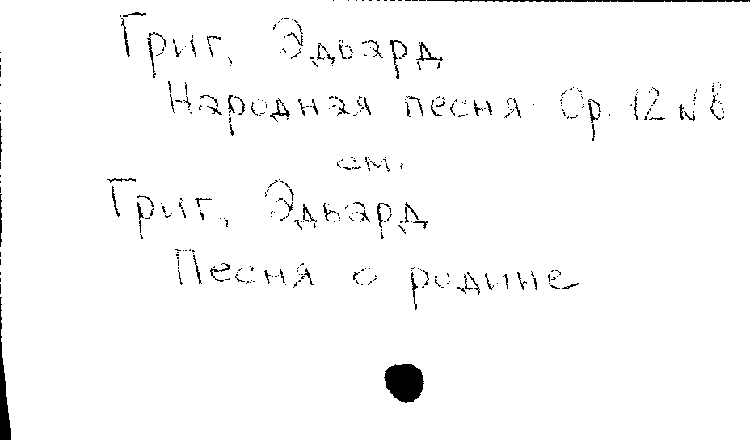 Григ, Эдвард
Народная песня. Op. 12 № 8
см.
Григ, Эдвард
Песня о родине